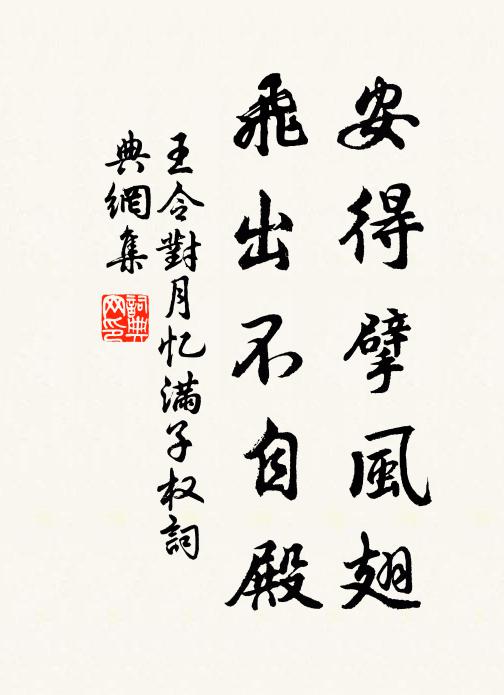 安得擘風翅
飛出不自殿
王令對月忆滿子权詞
典網集
詞典网印